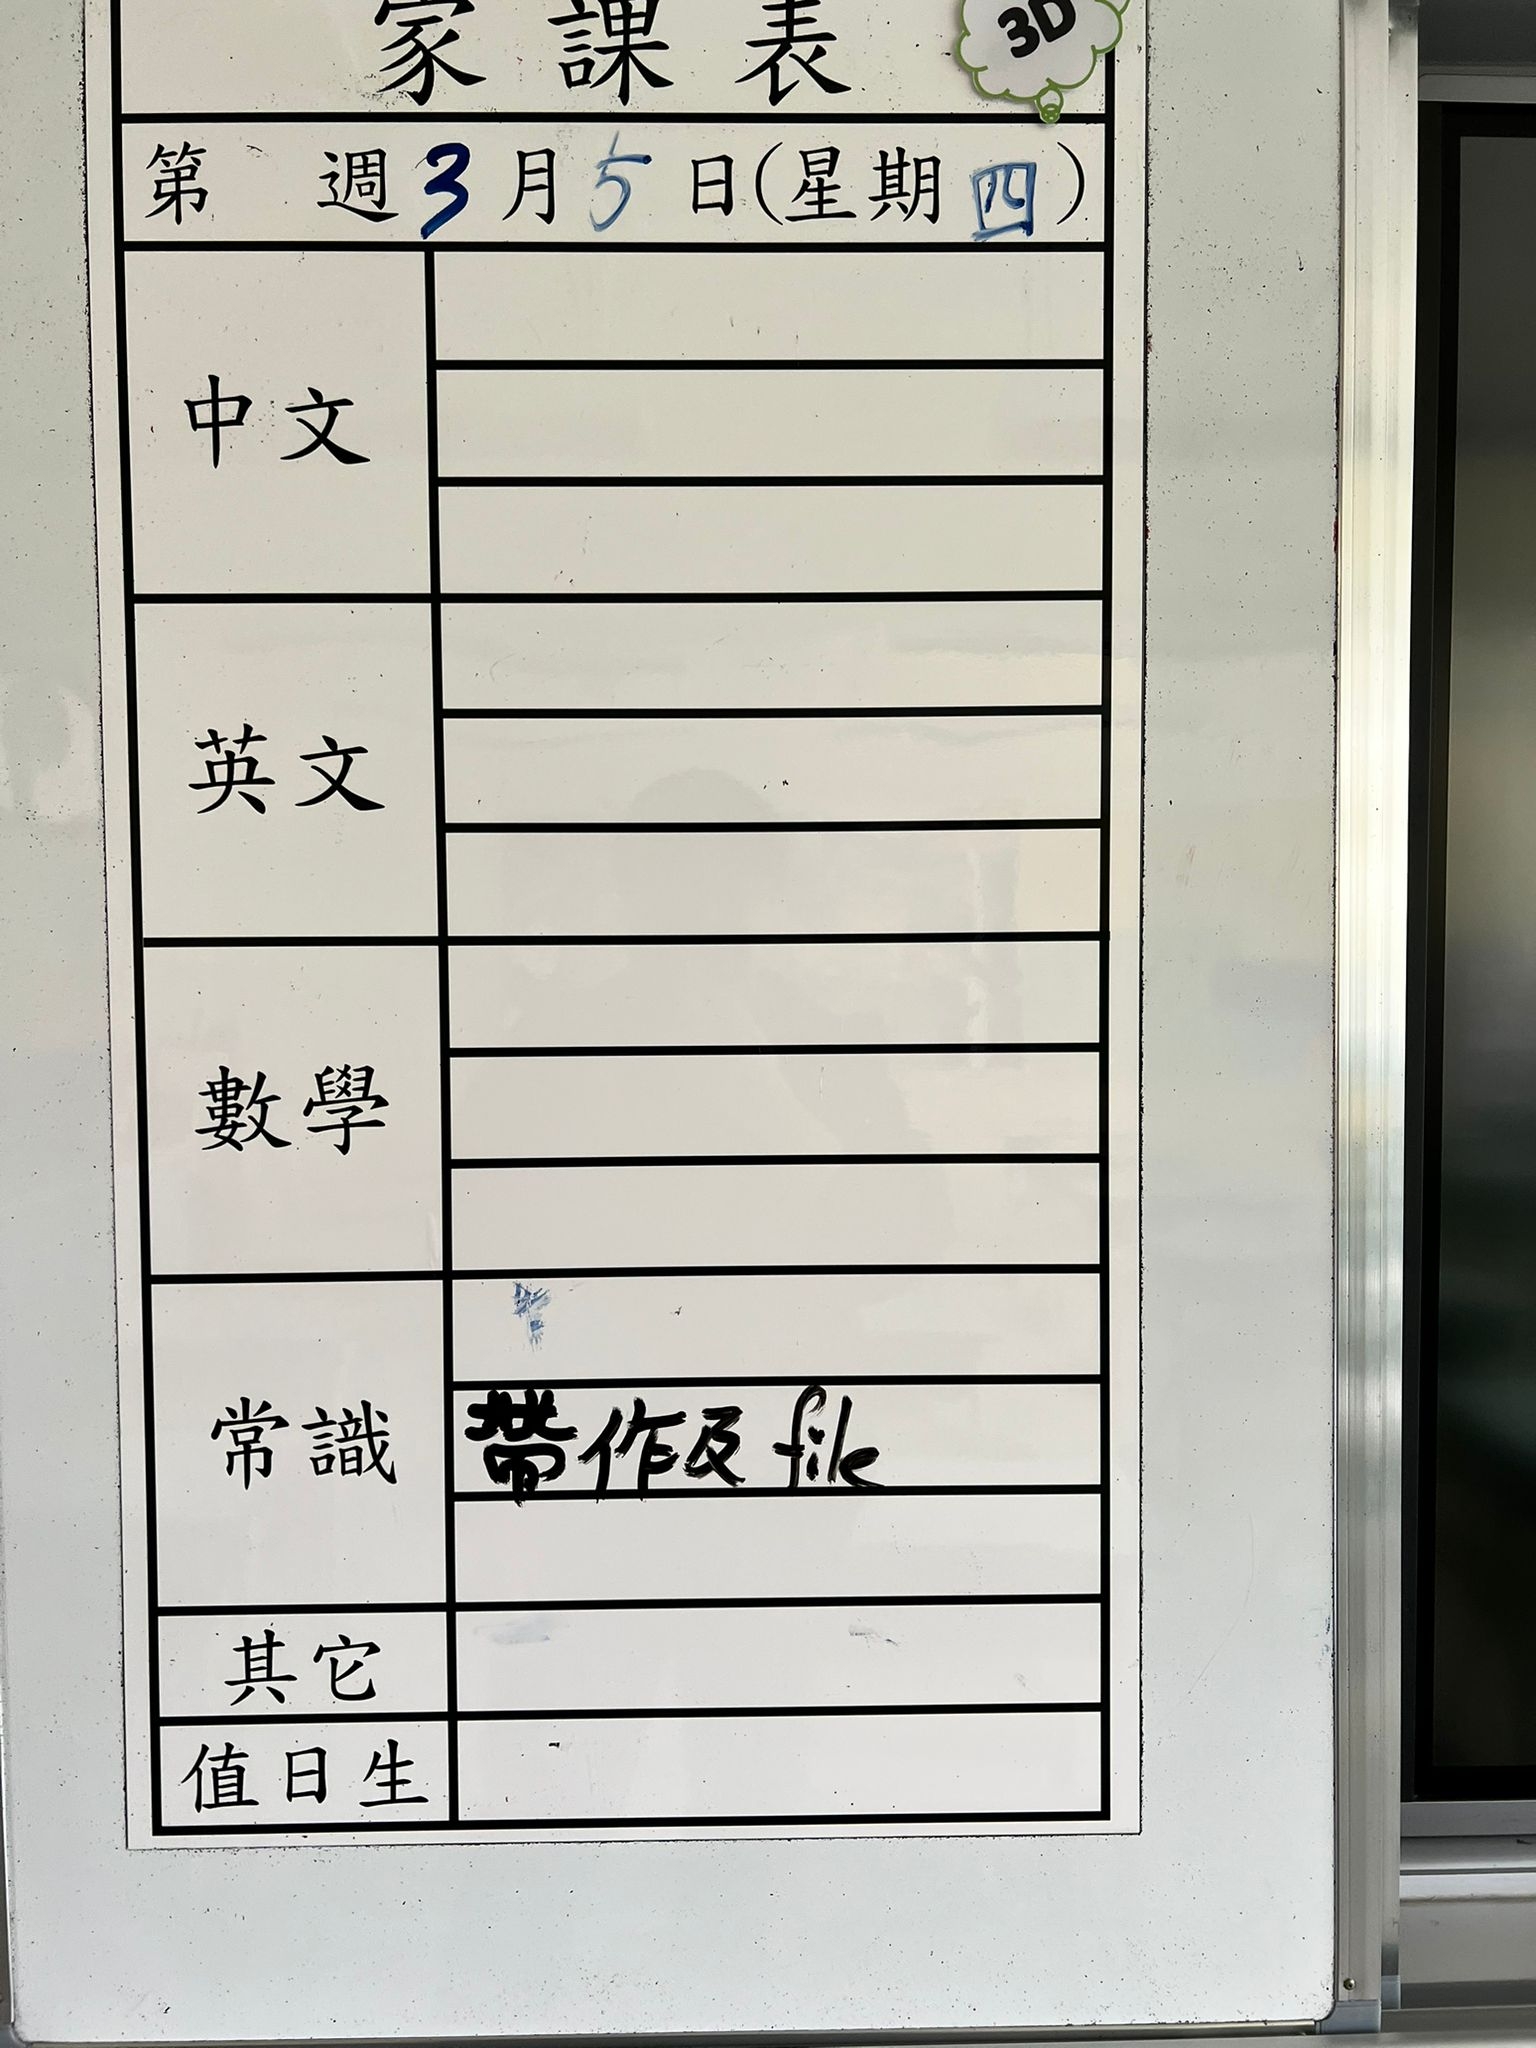 家課表
3D
第 週3月5日(星期四)
中文
英文
數學
常識
帶作及file
其它
值日生